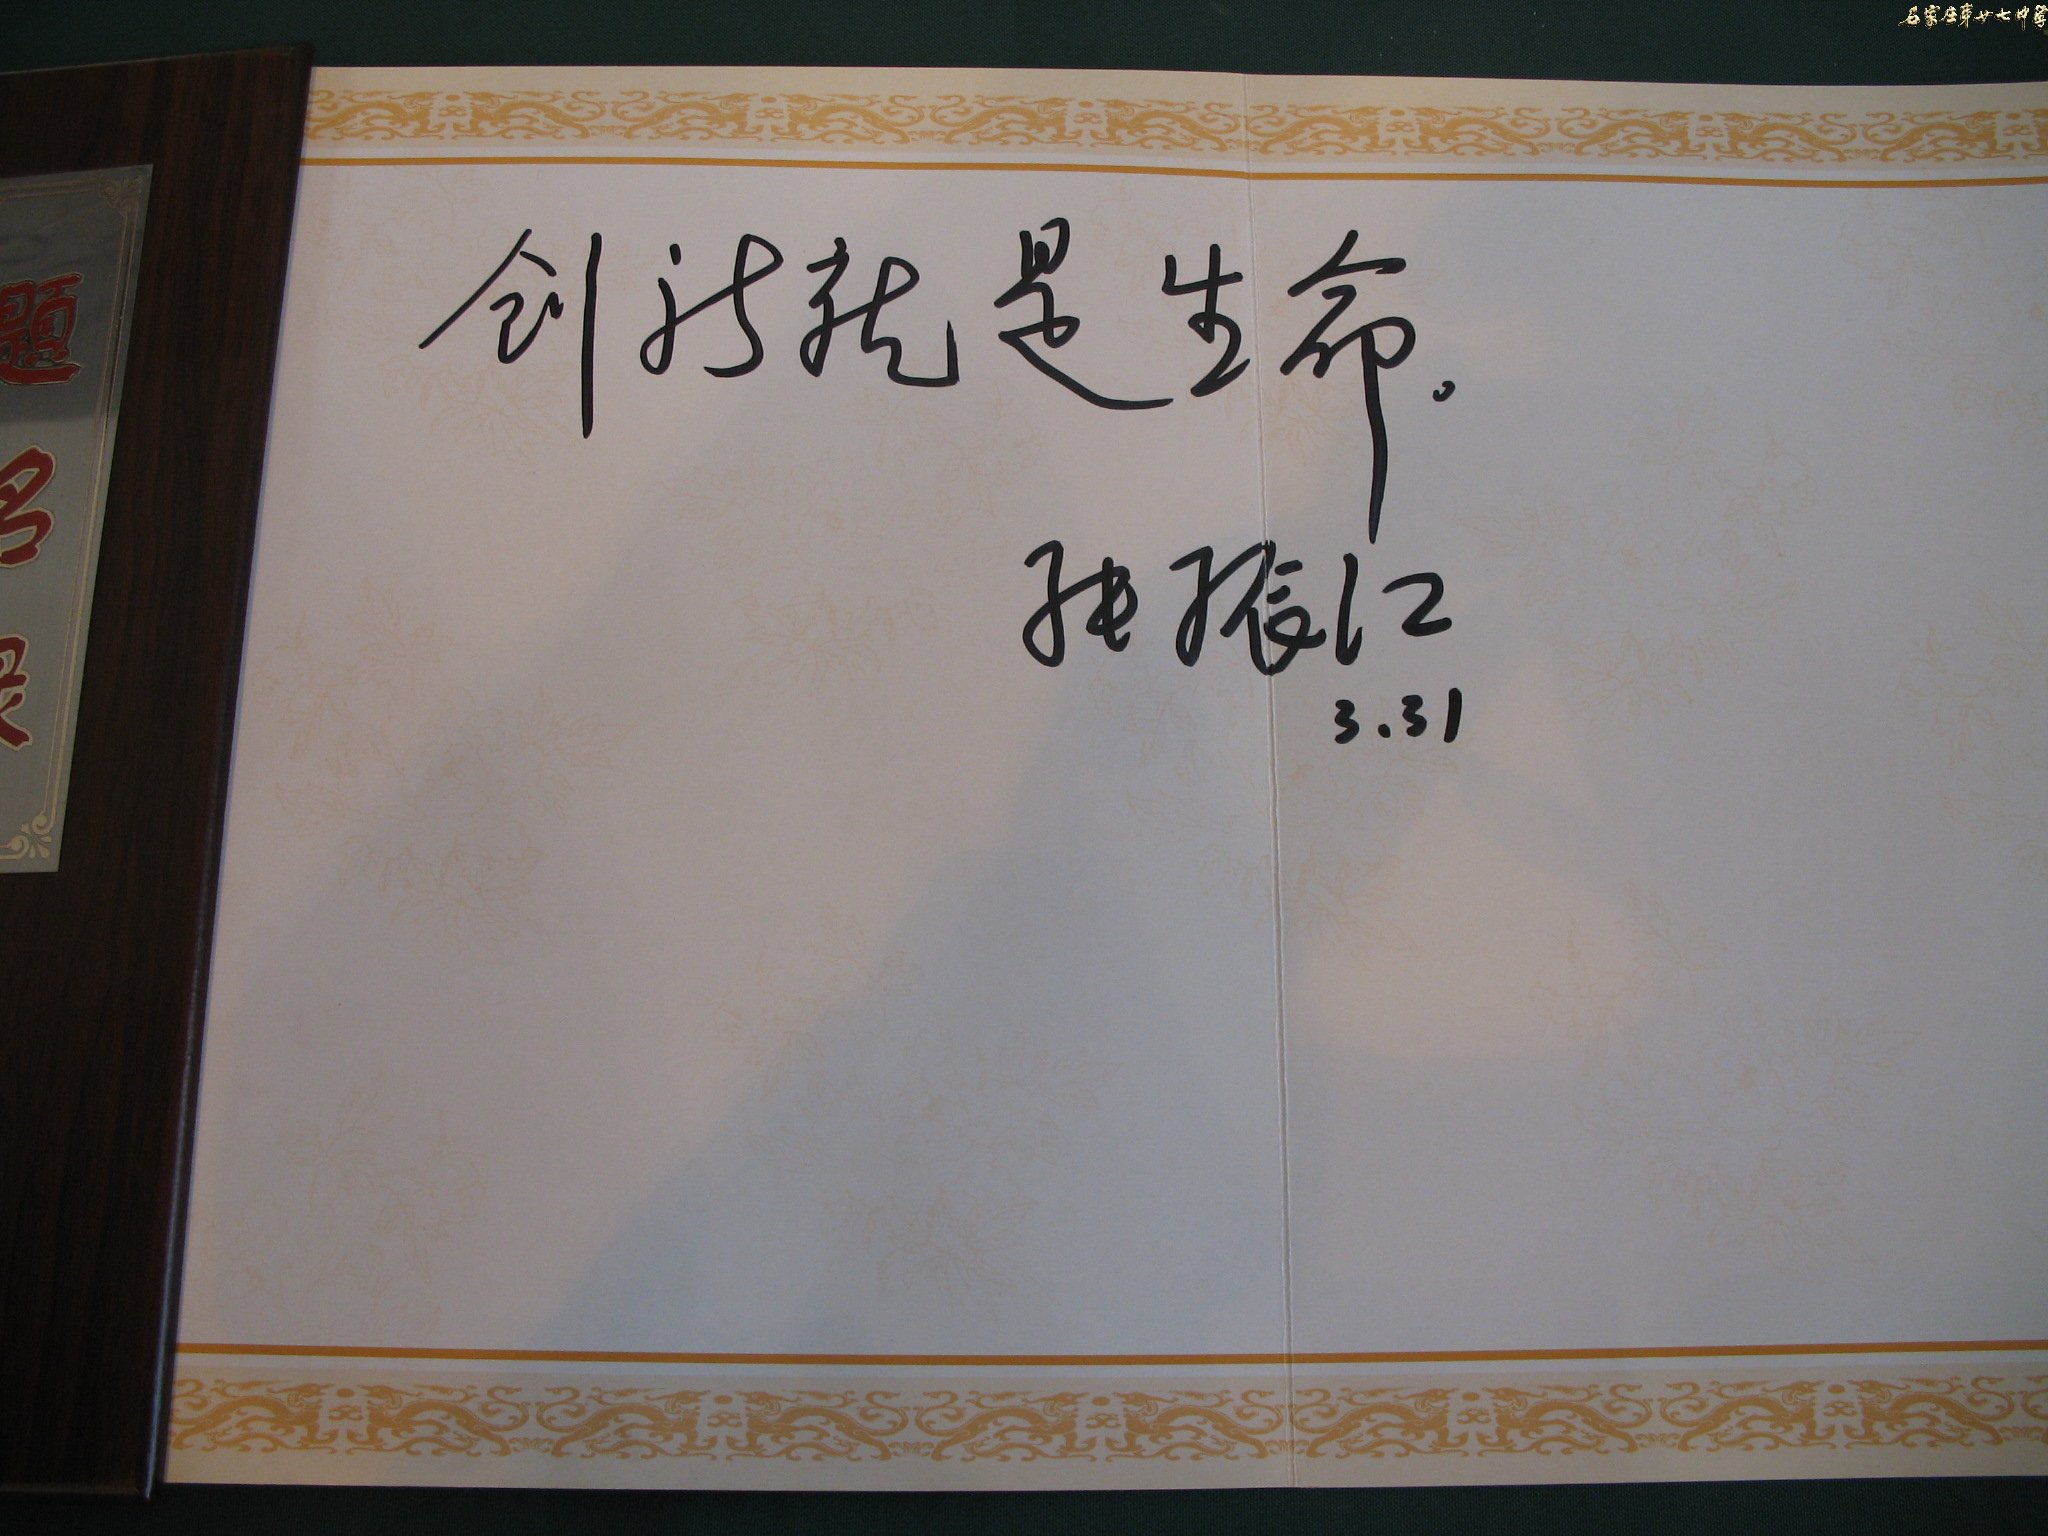 石家庄第廿七中学
题名录
创新就是生命。
张振江
3.31